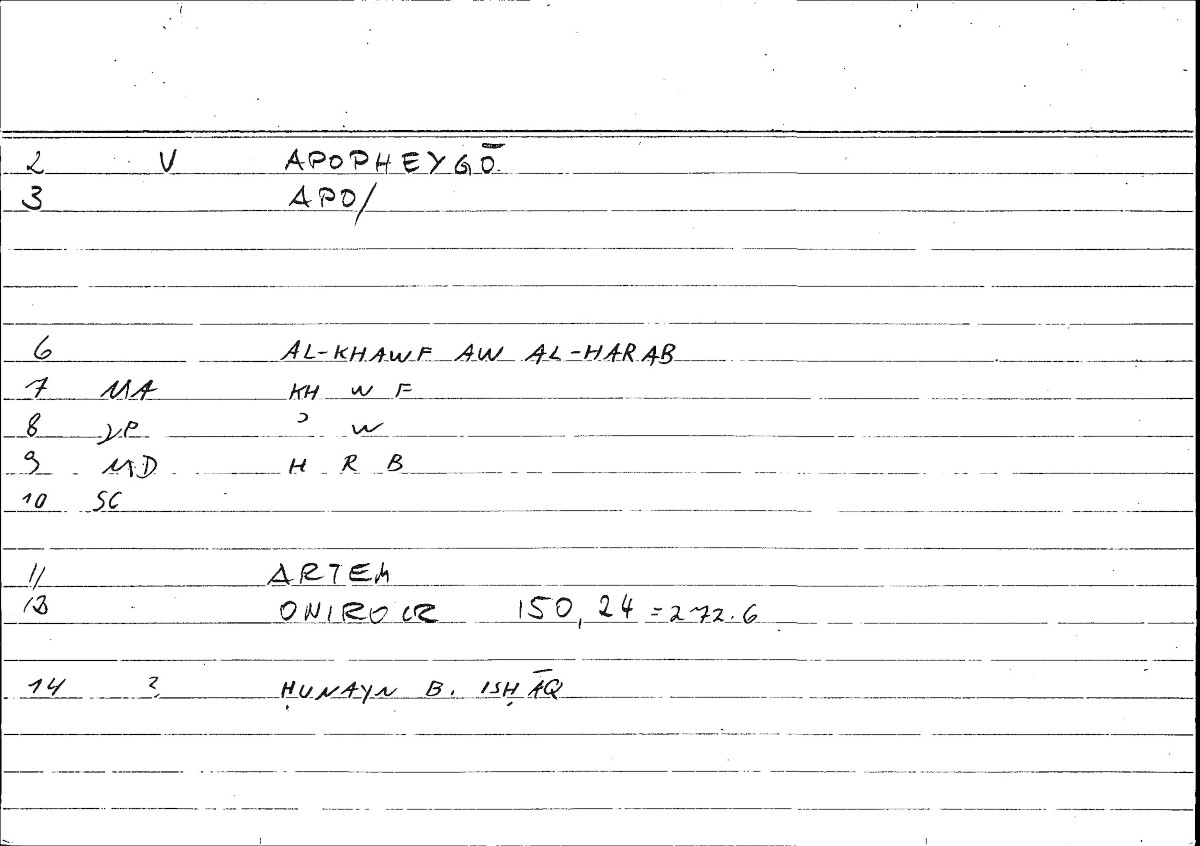 2 V APOPHEYGŌ
3 APO/
6 AL-KHAWF AW AL-HARAB
7 MA KH W F
8 YP ʾ W
9 MD H R B
10 SC
11 ARTEM
13 ONIROCR 150,24 =272.6
14 ? ḤUNAYN B. ISḤĀQ